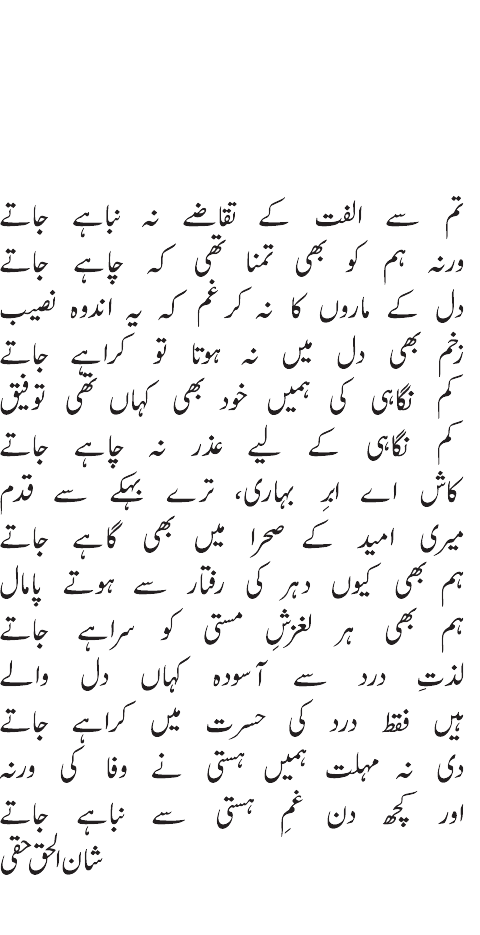 تم سے الفت کے تقاضے نہ نباہے جاتے
ورنہ ہم کو بھی تمنا تھی کہ چاہے جاتے
دل کے ماروں کا نہ کر غم کہ یہ اندوہ نصیب
زخم بھی دل میں نہ ہوتا تو کراہے جاتے
کم نگاہی کی ہمیں خود بھی کہاں تھی توفیق
کم نگاہی کے لیے عذر نہ چاہے جاتے
کاش اے ابرِ بہاری، ترے بہکے سے قدم
میری امید کے صحرا میں بھی گاہے جاتے
ہم بھی کیوں دہر کی رفتار سے ہوتے پامال
ہم بھی ہر لغزشِ مستی کو سراہے جاتے
لذتِ درد سے آسودہ کہاں دل والے
ہیں فقط درد کی حسرت میں کراہے جاتے
دی نہ مہلت ہمیں ہستی نے وفا کی ورنہ
اور کچھ دن غمِ ہستی سے نباہے جاتے
شان الحق حقی